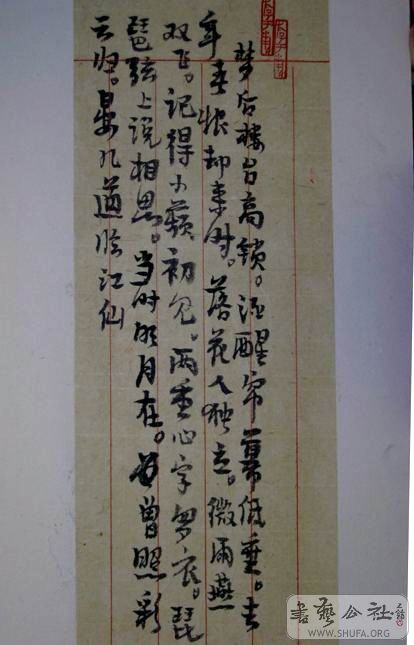 梦后楼台高锁。酒醒帘幕低垂。去
年春恨却来时。落花人独立。微雨燕
双飞。记得小蘋初见。两重心字罗衣。琵
琶弦上说相思。当时明月在。曾照彩
云归。晏几道临江仙
書藝公社
WWW.SHUFA.ORG